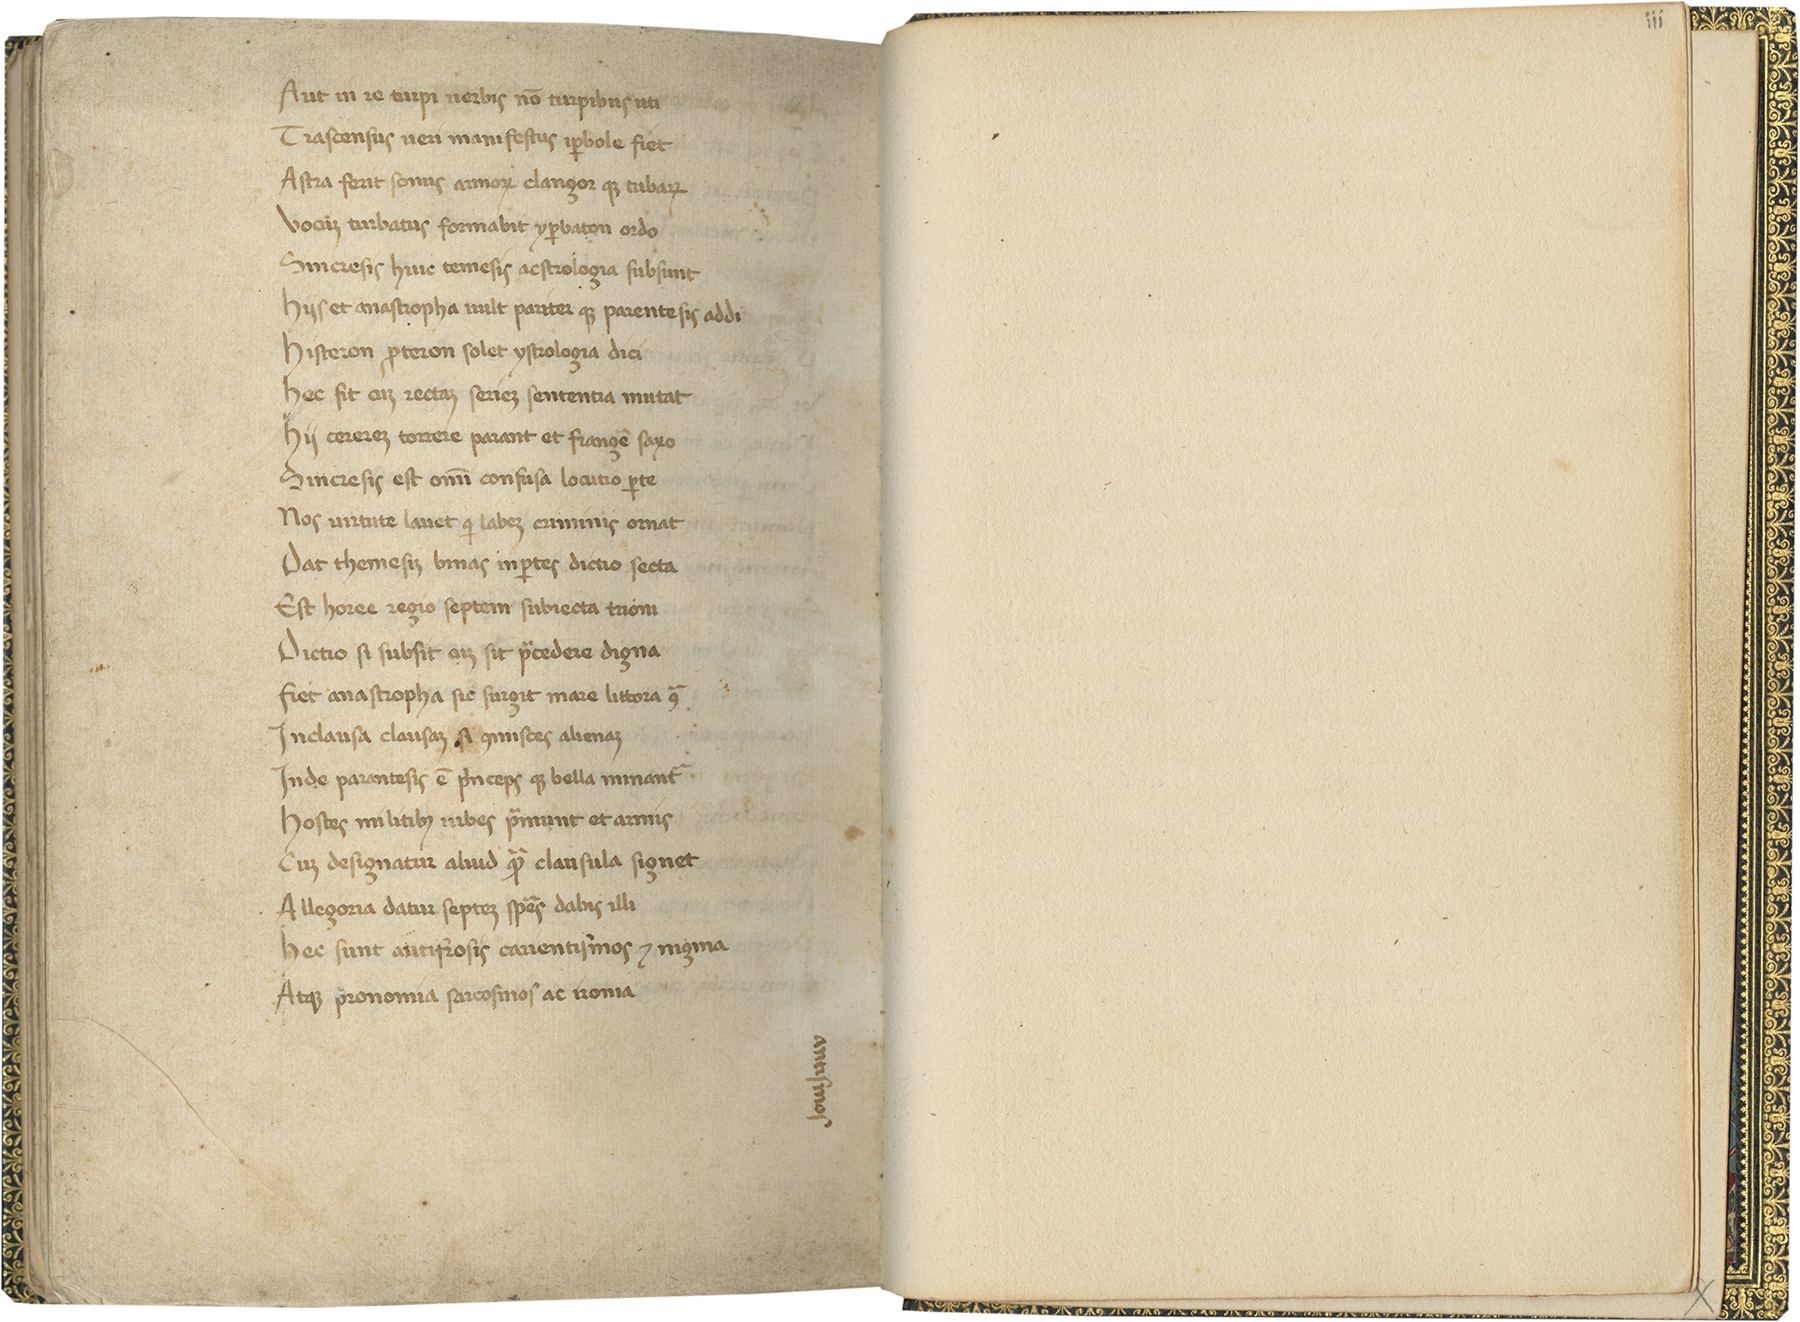 Aut in re turpi uerbis nō turpibus uti
Trascensus ueri manifestus iꝑbole fiet
Astra ferit sonus armoꝝ clangor qꝫ tubaꝝ
Vocuꝫ turbatus formabit yꝑbaton ordo
Sincresis huic temesis acstrologia subsunt
Hijs et anastropha uult pariter qꝫ parentesis addi
Histeron ꝓteron solet ystrologia dici
Hec fit cuꝫ rectaꝫ serieꝫ sententia mutat
Hij cerereꝫ torrere parant et frangē saxo
Sincresis est omī confusa locutio ꝑte
Nos uirtute lauet qi labeꝫ criminis ornat
Dat themesiꝫ binas in ꝑtes dictio secta
Est horee regio septem subiecta trioni
Dictio si subsit cuꝫ sit p̄cedere digna
fiet anastropha sic surgit mare littora ꝯᷓ
Inclausa clausaꝫ si ꝯmisces alienaꝫ
Inde parantesis ē p̓nceps qꝫ bella minant᷑
Hostes militibꝫ urbes p̄muunt et armis
Cuꝫ designatur aliud qᷓꝫ clausula signet
Allegoria datur septeꝫ spēs dabis illi
Hec sunt antifrosis carientismos ⁊ nigma
Atqꝫ pronomia sarcosmos ac ironia
antismos
iii
X